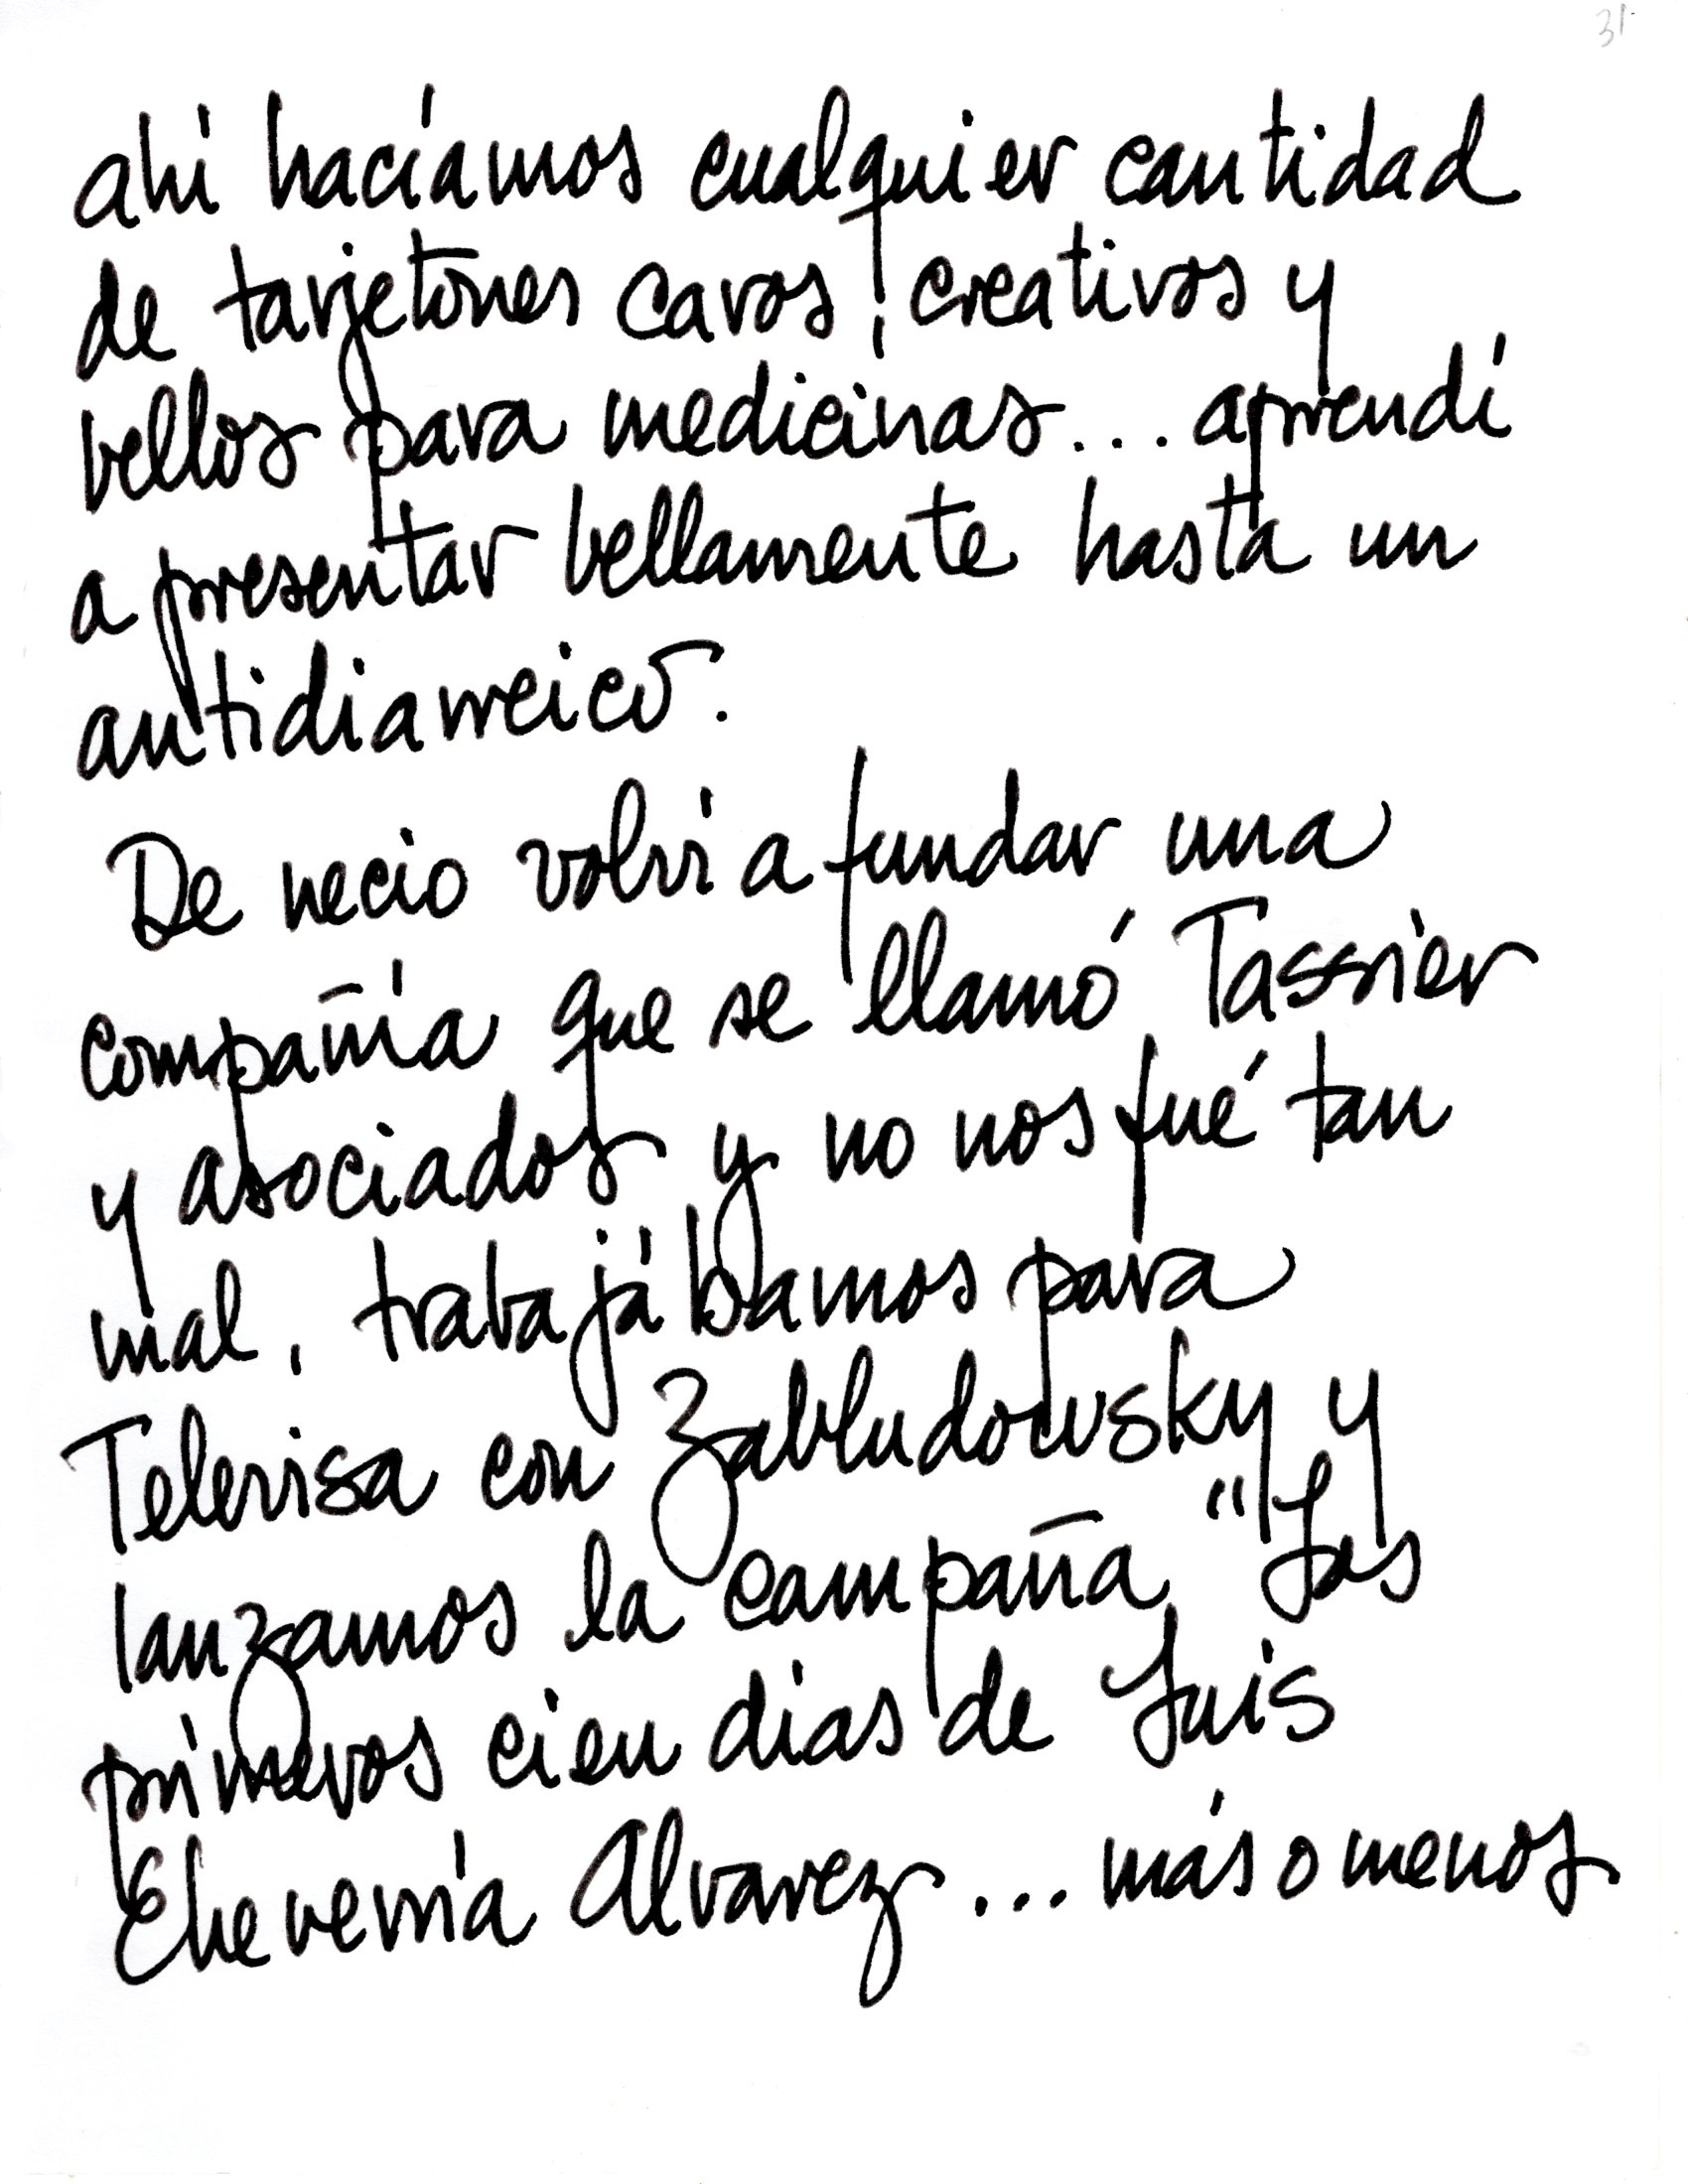 31
ahí hacíamos cualquier cantidad
de tarjetones caros, creativos y
bellos para medicinas... aprendí
a presentar bellamente hasta un
antidiarreico.
De necio volví a fundar una
compañía que se llamó Tassier
y asociados y no nos fué tan
mal, trabajábamos para
Televisa con Zabludowsky y
lanzamos la campaña "Los
primeros cien dias de Luis
Echeverría Alvarez... más o menos